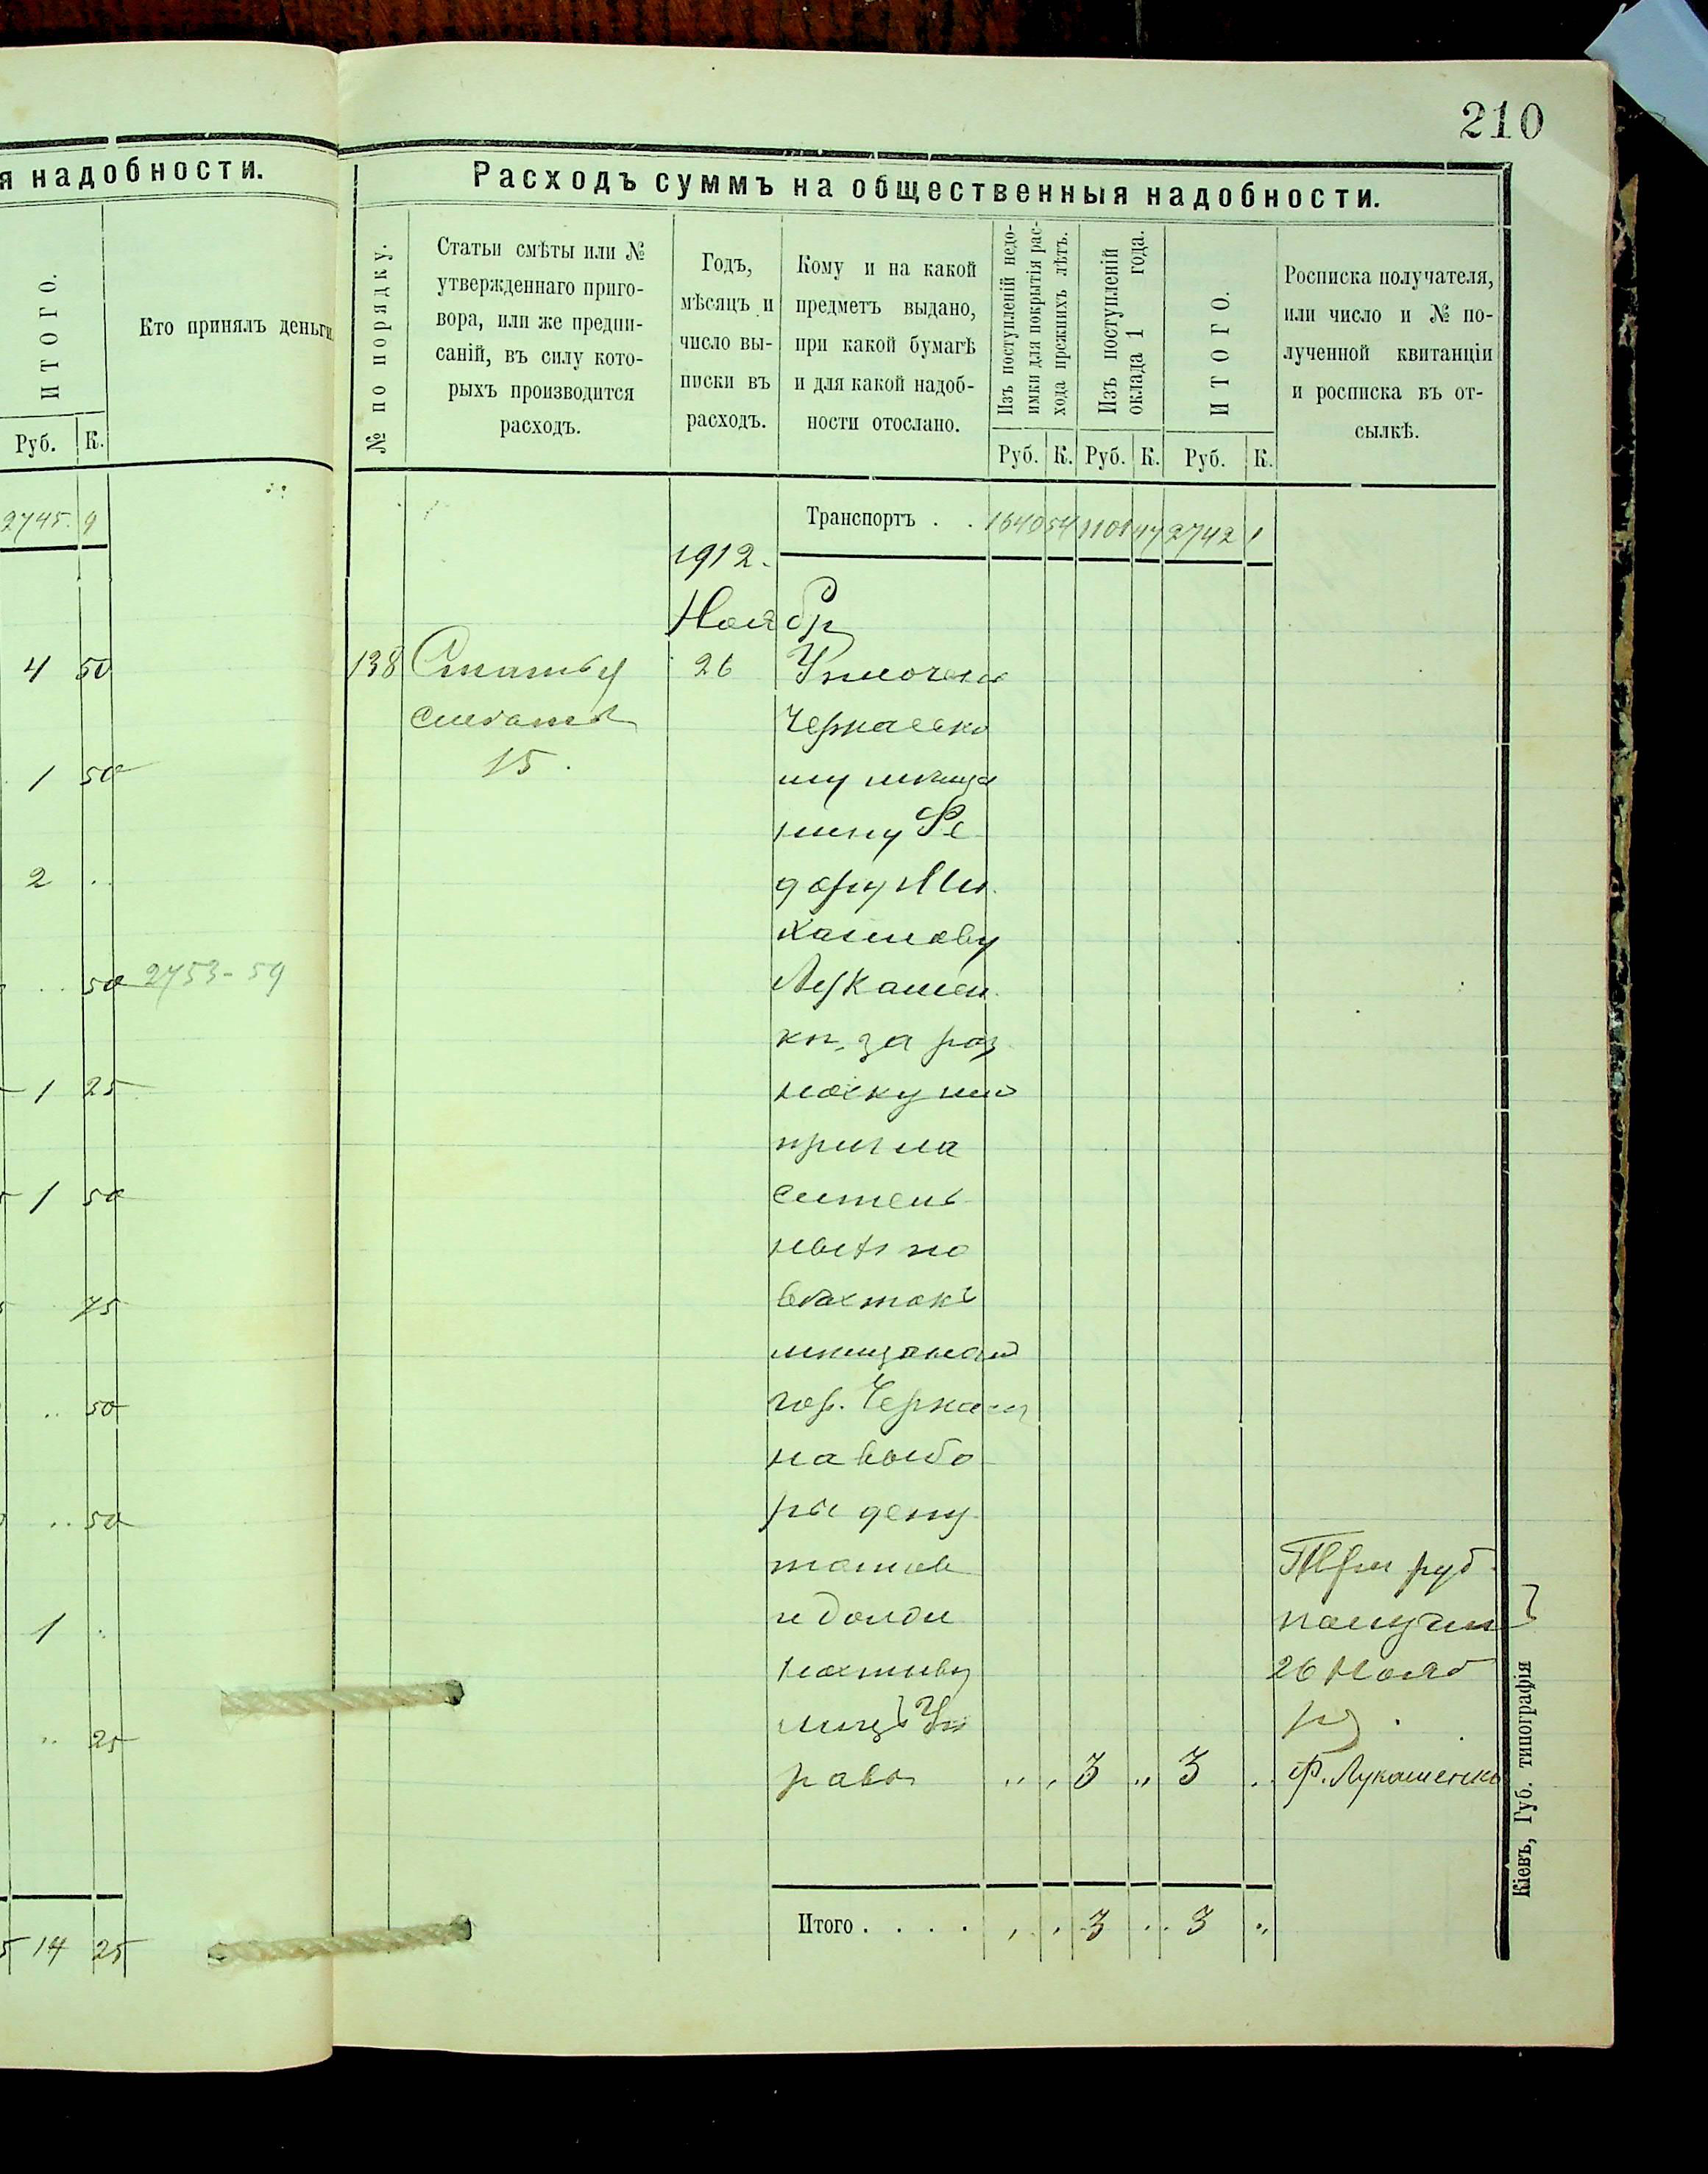 210
я надобности.
ИТОГО.
Кто принялъ деньги.
Руб. К.
2745. 9
4 50
1 50
2 ..
.. 50 2753-59
1 25
1 50
75
.. 50
.. 50
1 .
.. 25
14 25
Расходъ суммъ на общественныя надобности.
№ по порядку.
Статьи смѣты или №
утвержденнаго приго-
вора, или же предпи-
саній, въ силу кото-
рыхъ производится
расходъ.
Годъ,
мѣсяцъ и
число вы-
писки въ
расходъ.
Кому и на какой
предметъ выдано,
при какой бумагѣ
и для какой надоб-
ности отослано.
Изъ поступленій недо-
имки для покрытія рас-
хода прежнихъ лѣтъ.
Изъ поступленій
оклада 1 года.
ИТОГО.
Росписка получателя,
или число и № по-
лученной квитанціи
и росписка въ от-
сылкѣ.
Руб. К. Руб. К. Руб. К.
Транспортъ . . 1640 54 1101 47 2742 1
1912.
Ноября
138 Статья 26 Уплочено
сметы Черкаско
15. му мѣща
нину Ѳе
дору Ми
хайлову
Лукашен
ко, за раз
носку
пригла
ситель
ныхъ по
вѣстокъ
мѣщанам
гор. Черкасъ
на выбо
ры депу
татовъ
и долж
ностныхъ
лицъ Уп
равы .. . 3 .. 3 .
Три руб
получил
26 Нояб
ря.
Ф. Лукашенко
Итого . . . . , . 3 .. 3 ..
Кіевъ, Губ. типографія